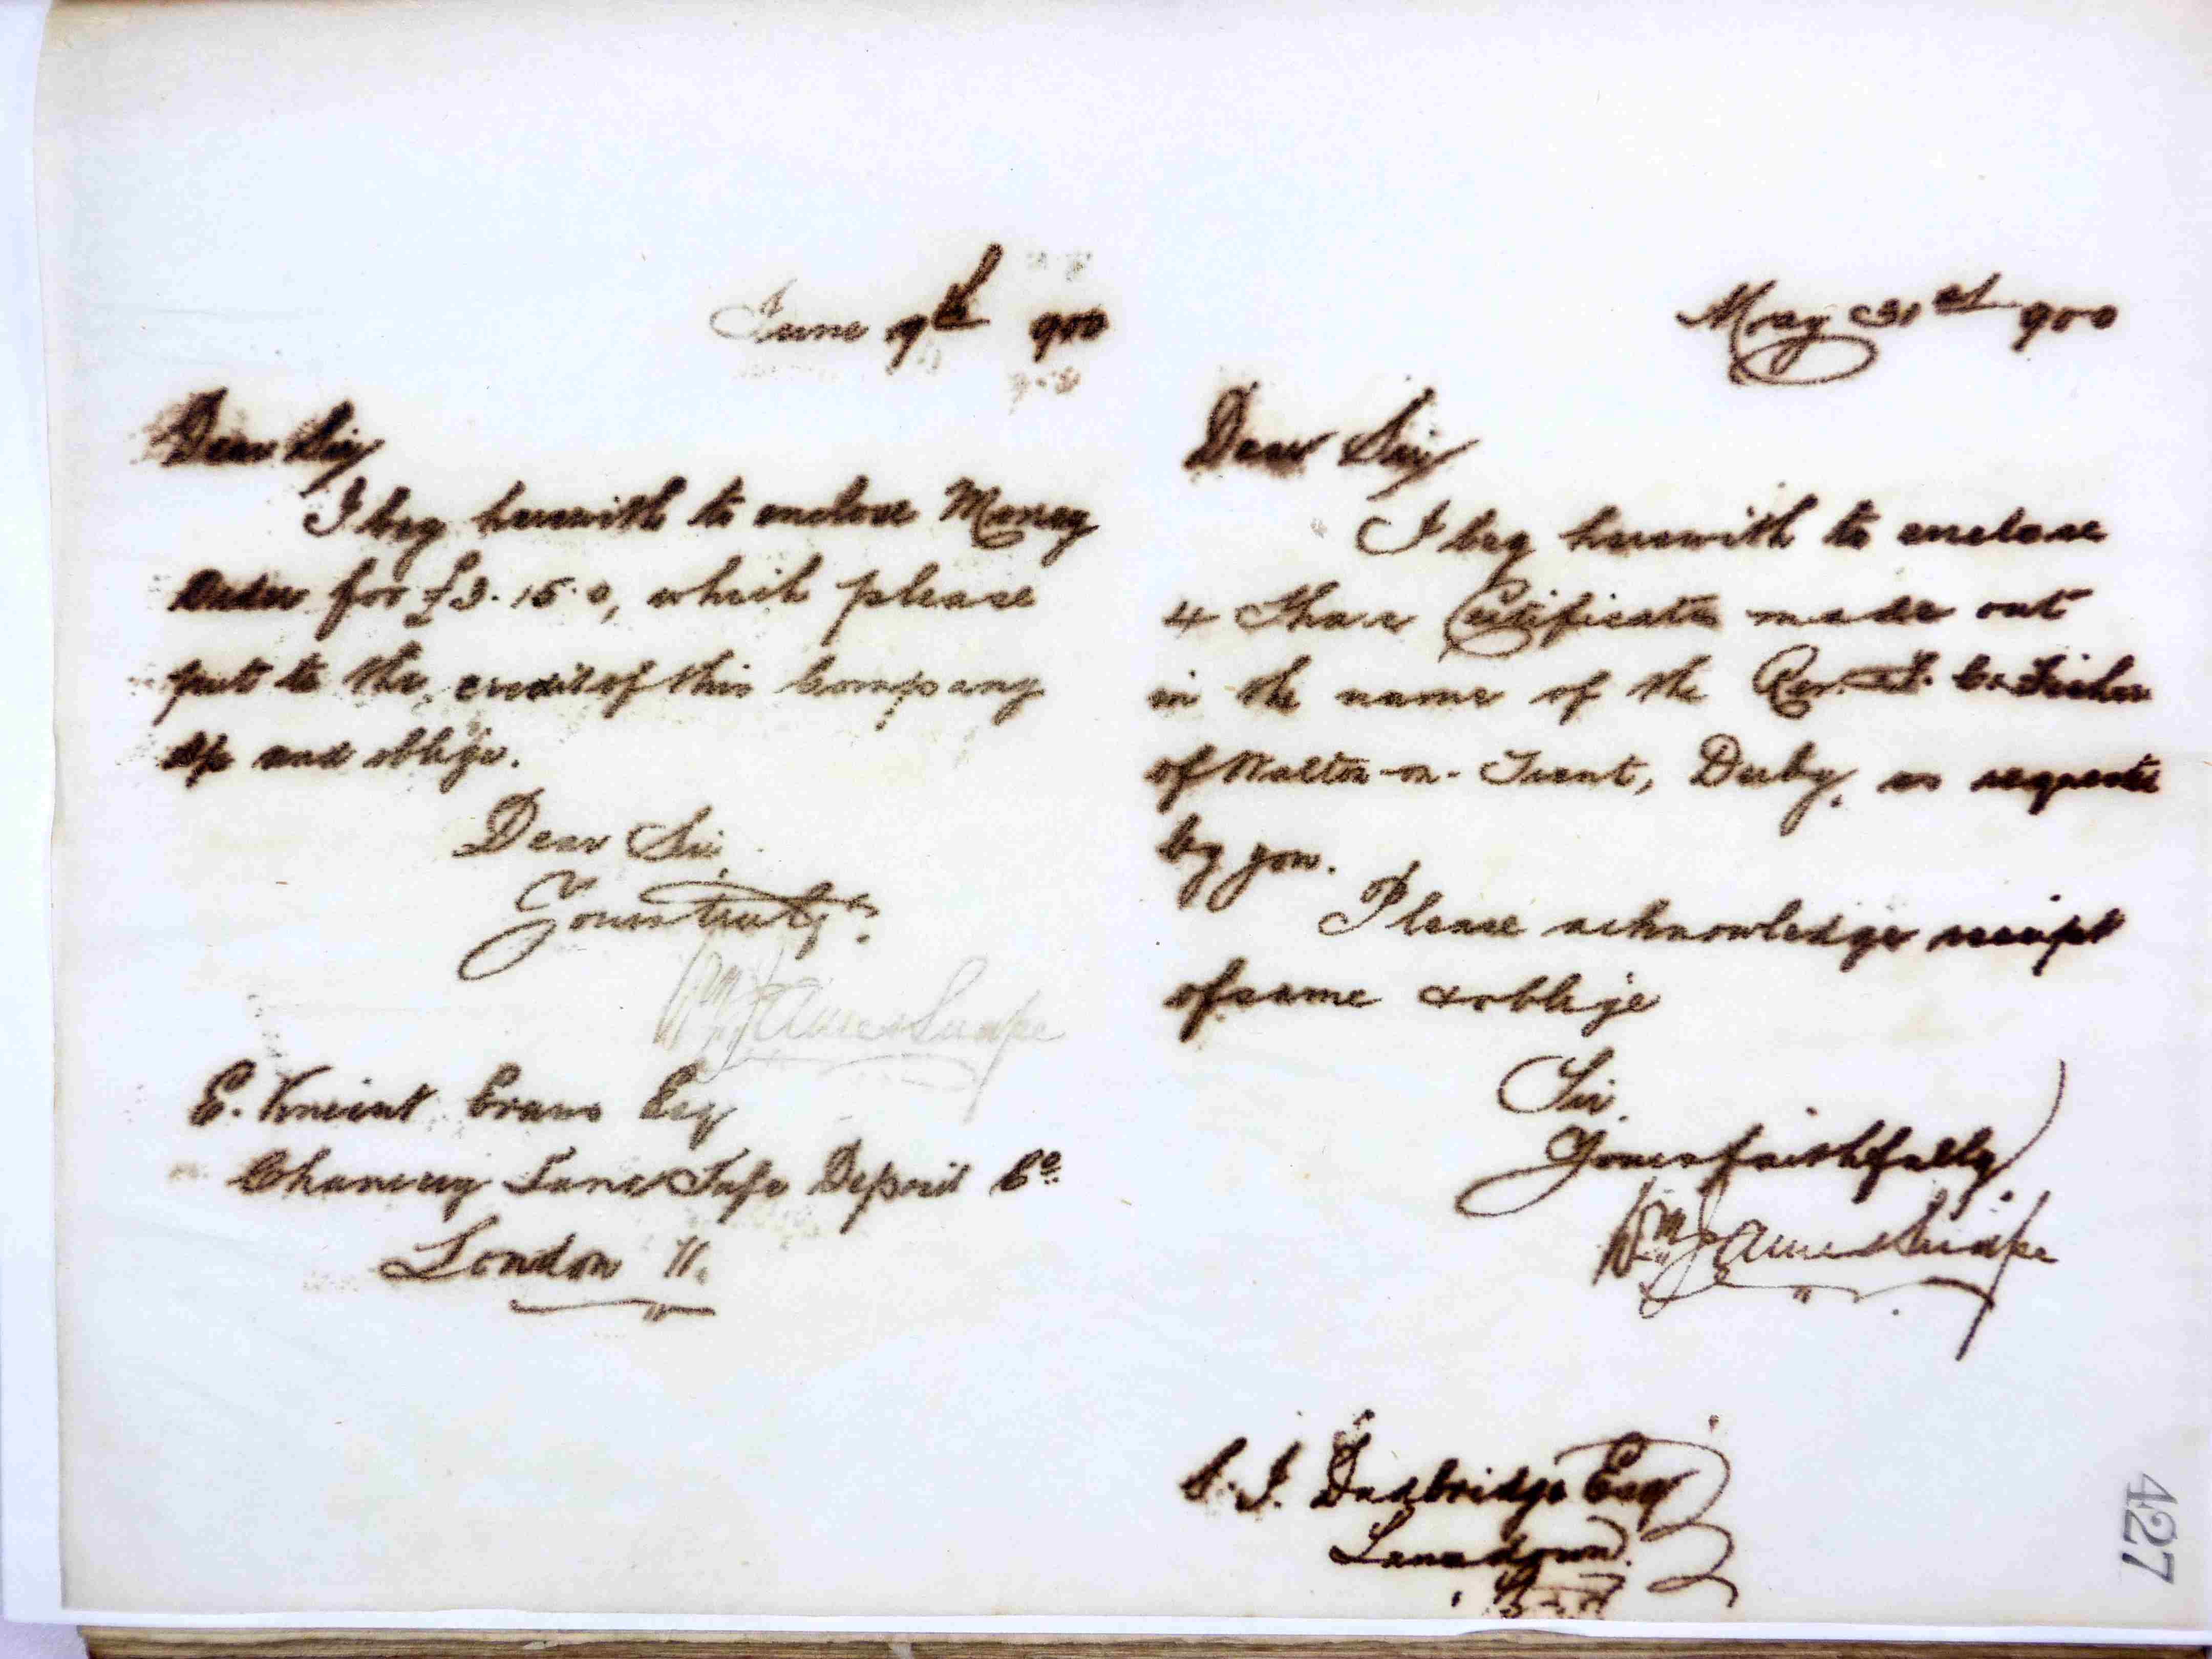 June 9th 900
Dear Sir
I beg herewith to enclose Money
Order for £3.15.0, which please
put to the credit of this Company
a/c and oblige.
Dear Sir
Yours truly
Wm James
E. Vincent Evans Esq
Chancery Lane Safe Deposit Co.
London W.
May 31st 900
Dear Sir
I beg herewith to enclose
4 Share Certificates made out
in the name of the Rev. C. Fisher
of Walton-on-Trent, Derby, as requested
by you.
Please acknowledge receipt
of same & oblige
Sir
Yours faithfully
Wm James
S. J. Dudbridge Esq
Lansdown
427